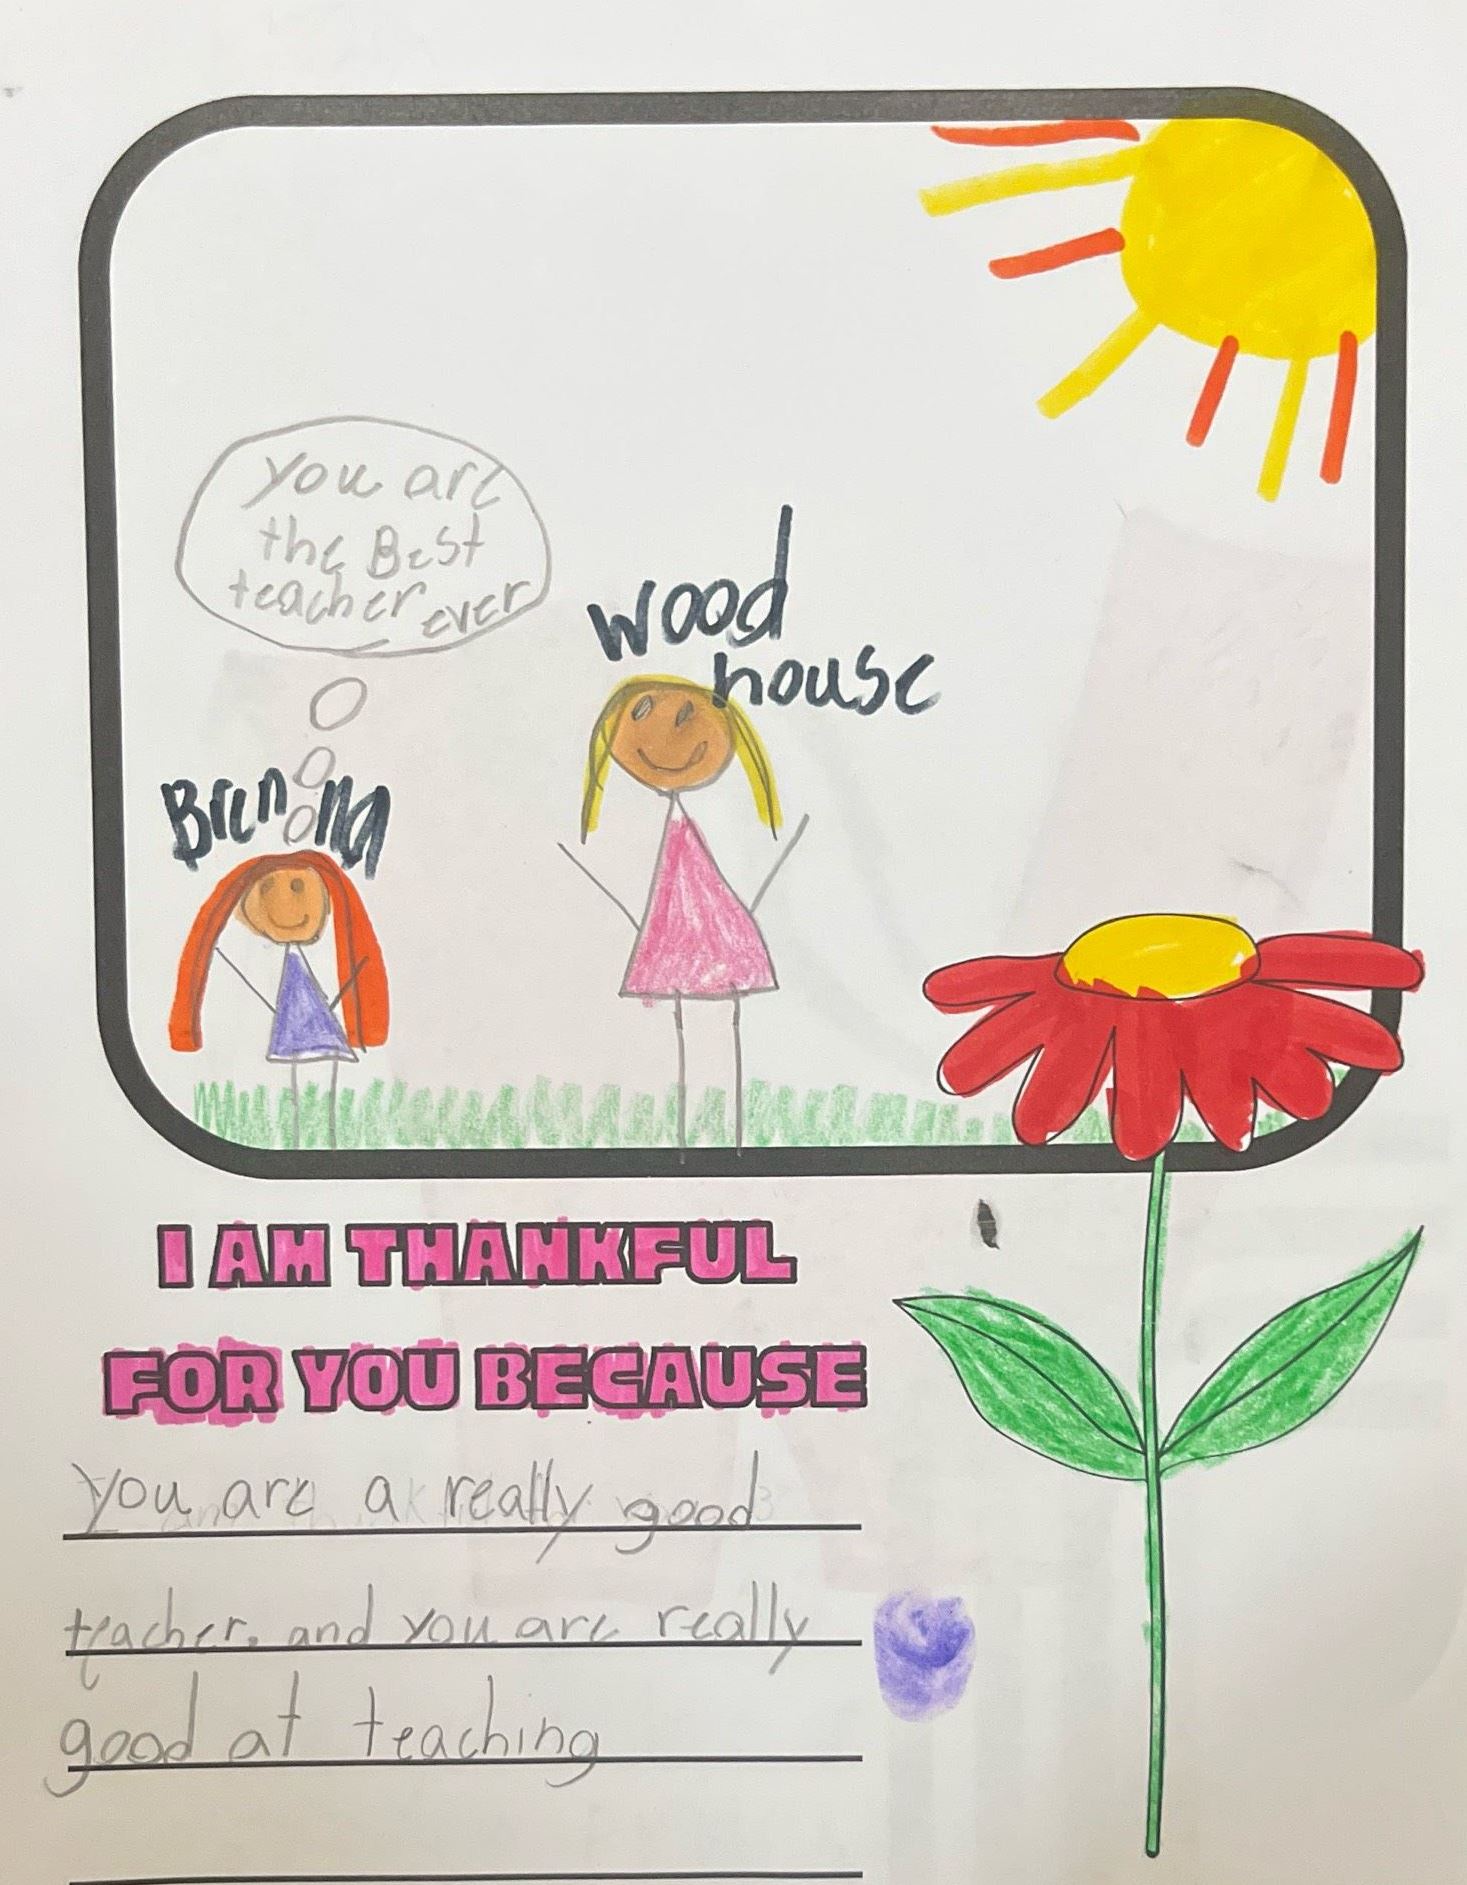 you are
the Best
teacher ever
wood
house
Brenna
I AM THANKFUL
FOR YOU BECAUSE
you are a really good
teacher. and you are really
good at teaching